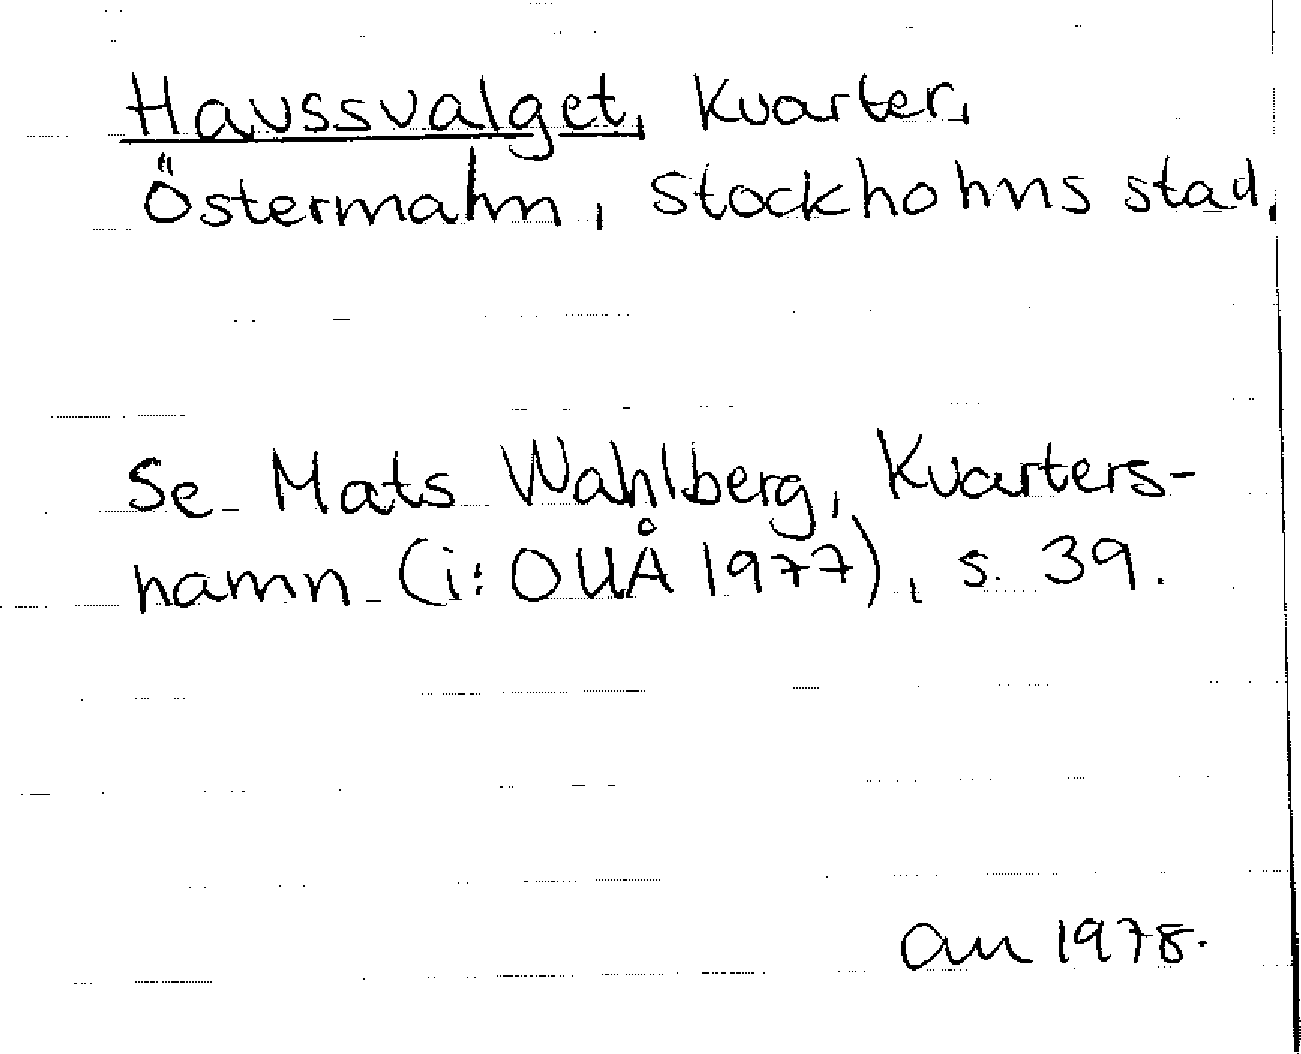 Havssvalget, kvarter,
Östermalm, Stockholms stad.
Se Mats Wahlberg, Kvarters-
namn (i: OUÅ 1977), s. 39.
an 1978.